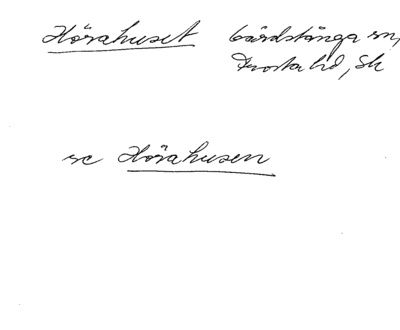 Hörahuset Gårdstånga sn,
Frosta hd, Sk
se Hörahusen